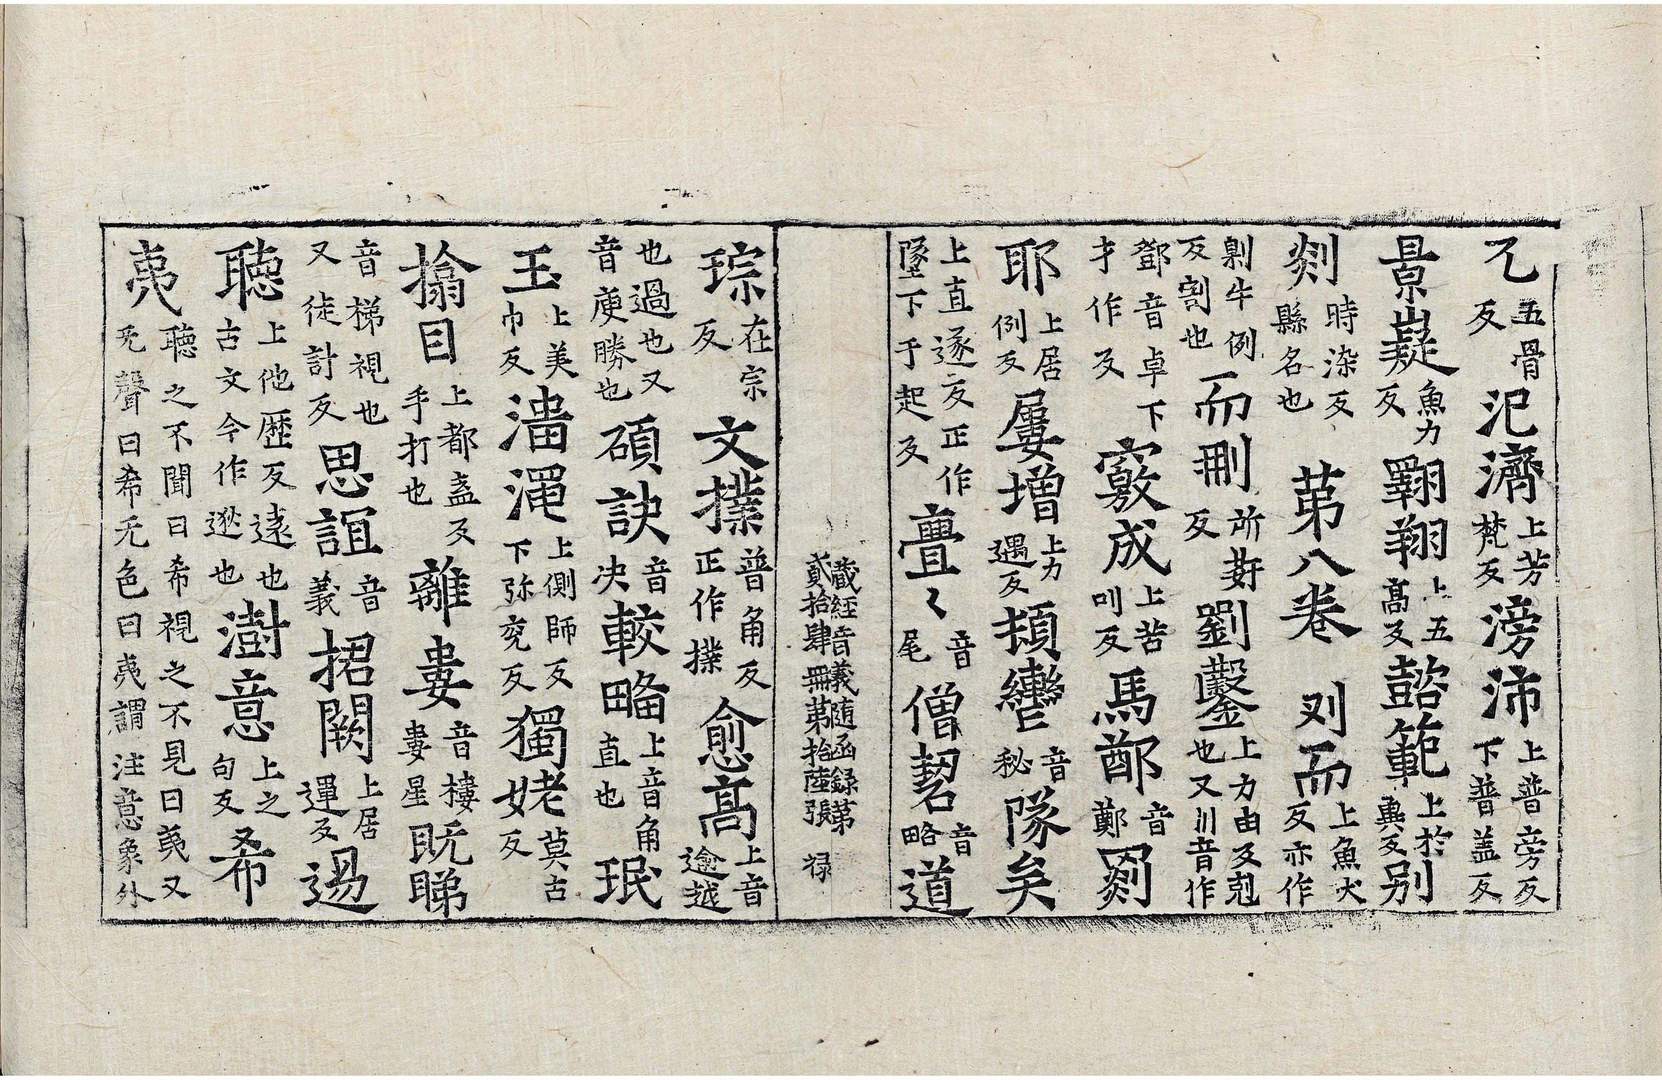 兀五骨反汜濟上芳梵反滂沛上普旁反下普盖反
景嶷魚力反翺翔上五高反懿範上於異反别
剡時染反縣名也第八卷刈而上魚吠反亦作
劓牛例反割也而刪所姧反劉鑿上力由反剋也又川音作
鄧音卓下才作反竅成上苦叫反馬鄭音鄭罽
耶上居例反屢增上力遇反頻轡音秘隊矣
上直遂反正作墜下于起反亹〻音尾僧䂮音略道
藏經音義随函録第貳拾肆冊第拾陸張 禄
琮在宗反文撲普角反正作撲愈高上音逾越
也過也又音庾勝也碩訣音决較略上音角直也珉
玉上美巾反淄澠上側師反下弥兖反獨姥莫古反
搨目上都盍反手打也離婁音樓婁星既睇
音梯視也又徒計反思誼音義捃闕上居運反逷
聽上他歷反遠也古文今作逖也澍意上之句反希
夷聽之不聞曰希視之不見曰夷又无聲曰希无色曰夷謂注意象外